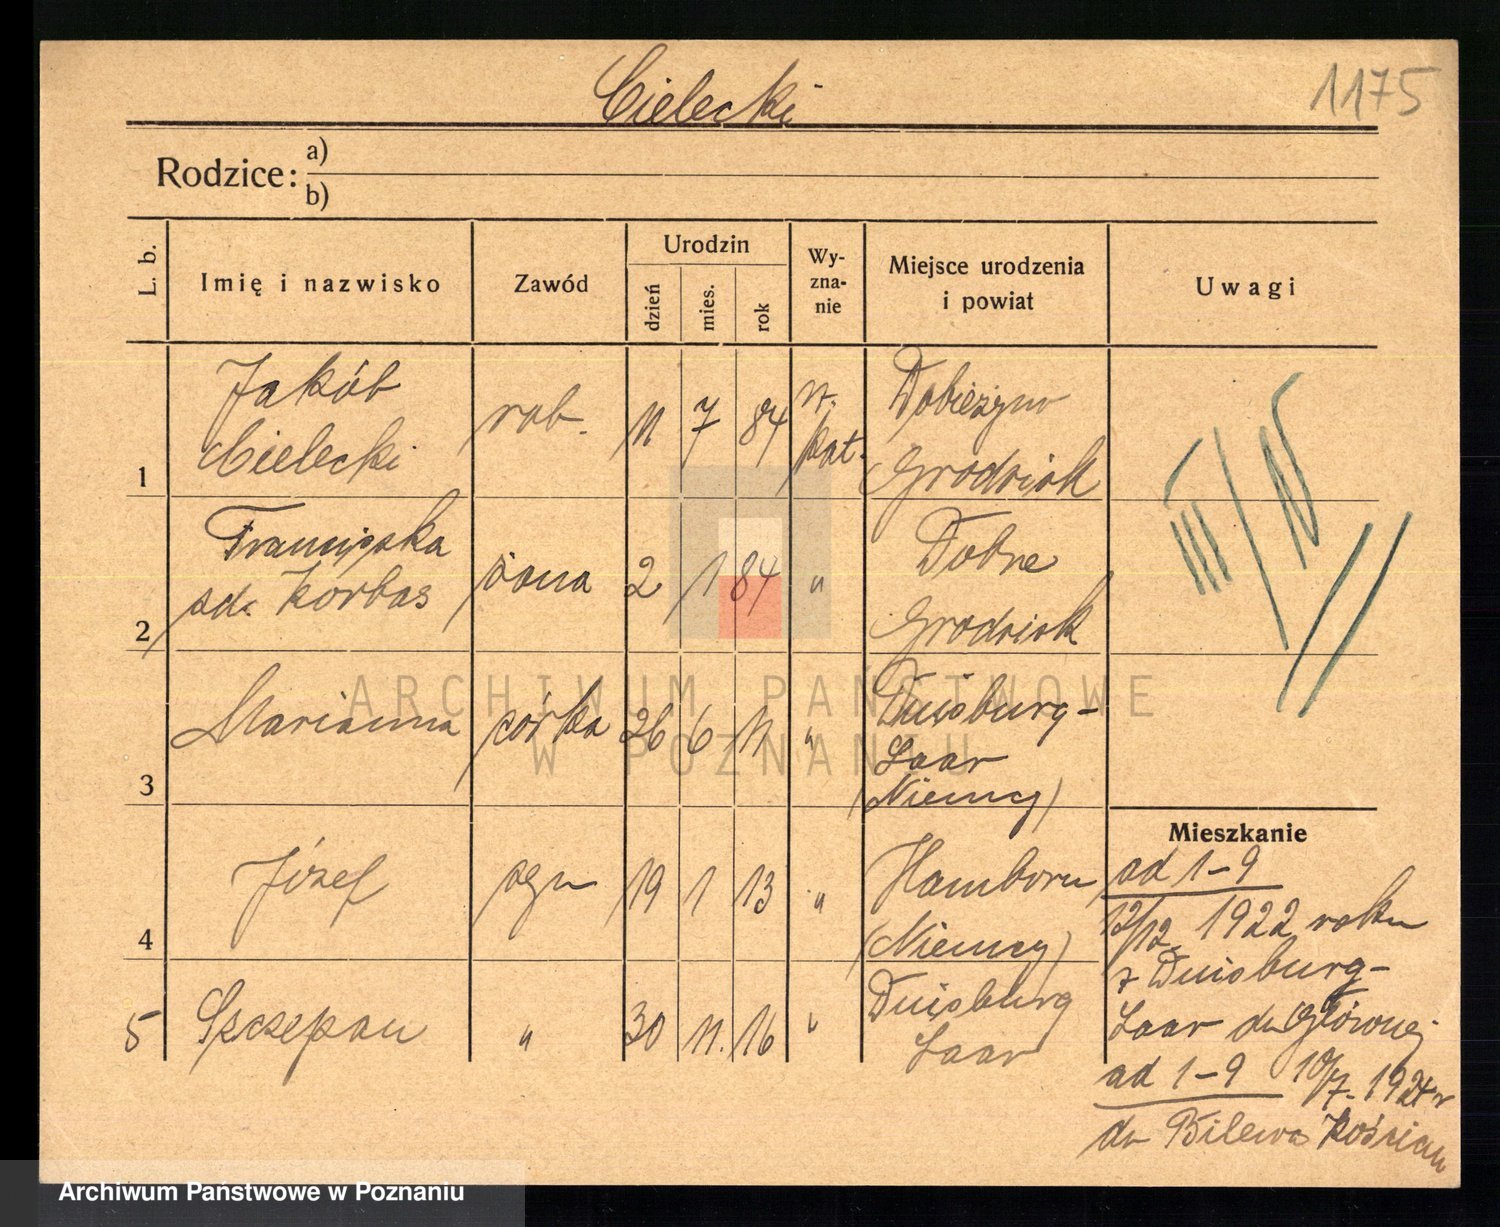 Cielecki
1175
Rodzice:
a)
b)
L. b.
Imię i nazwisko
Zawód
Urodzin
dzień
mies.
rok
Wy-
zna-
nie
Miejsce urodzenia
i powiat
Uwagi
1
Jakób
Cielecki
rob.
11
7
84
rz.
kat.
Dobieżyn
Grodzisk
2
Franciszka
zd. Korbas
żona
2
1
84
"
Dobre
Grodzisk
3
Marianna
córka
26
6
11
"
Duisburg-
Laar
(Niemcy)
4
Józef
syn
19
1
13
"
Hamborn
(Niemcy)
5
Szczepan
"
30
11.
16
"
Duisburg
Laar
Mieszkanie
ad 1-9
12/12. 1922 roku
z Duisburg-
Laar do Głównej
ad 1-9 10/7. 1924 r
do Bilewo Kościan
ARCHIWUM PAŃSTWOWE
W POZNANIU
Archiwum Państwowe w Poznaniu